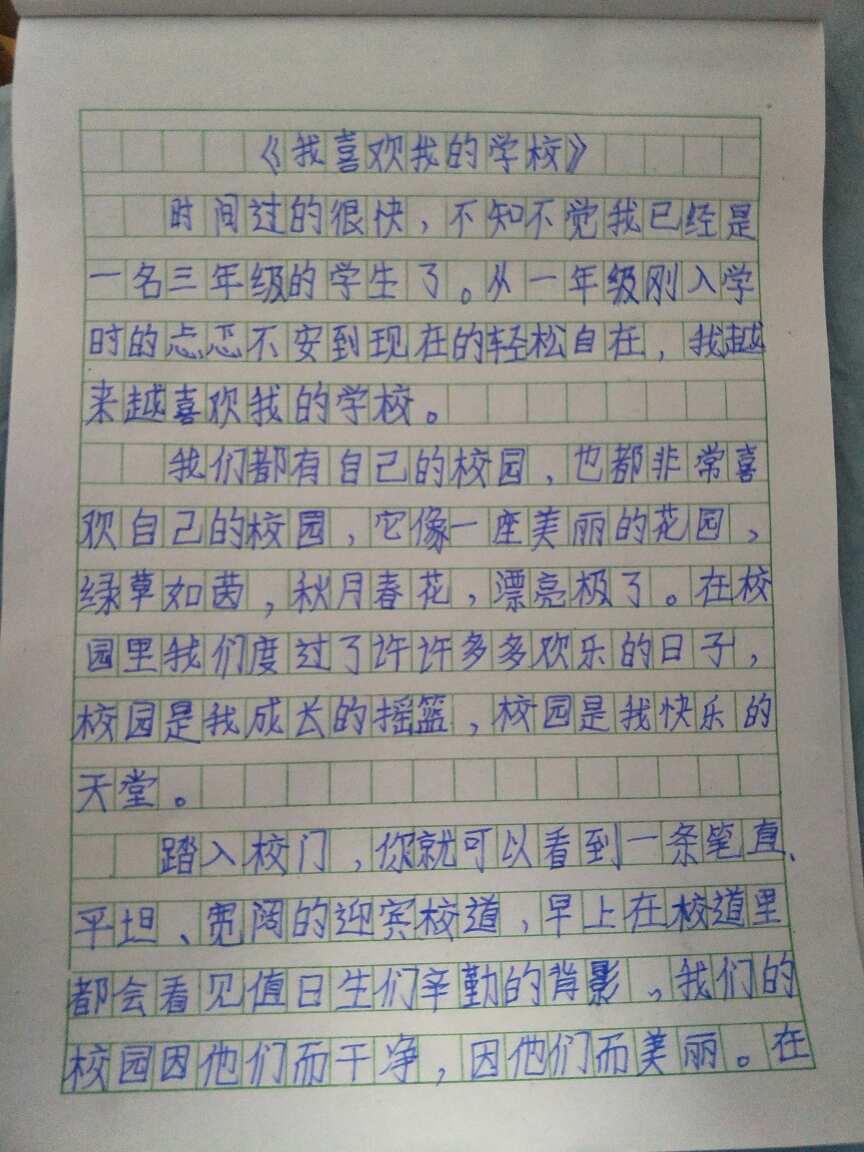 《我喜欢我的学校》
时间过的很快，不知不觉我已经是
一名三年级的学生了。从一年级刚入学
时的忐忑不安到现在的轻松自在，我越
来越喜欢我的学校。
我们都有自己的校园，也都非常喜
欢自己的校园，它像一座美丽的花园，
绿草如茵，秋月春花，漂亮极了。在校
园里我们度过了许许多多欢乐的日子，
校园是我成长的摇篮，校园是我快乐的
天堂。
踏入校门，你就可以看到一条笔直、
平坦、宽阔的迎宾校道，早上在校道里
都会看见值日生们辛勤的背影，我们的
校园因他们而干净，因他们而美丽。在